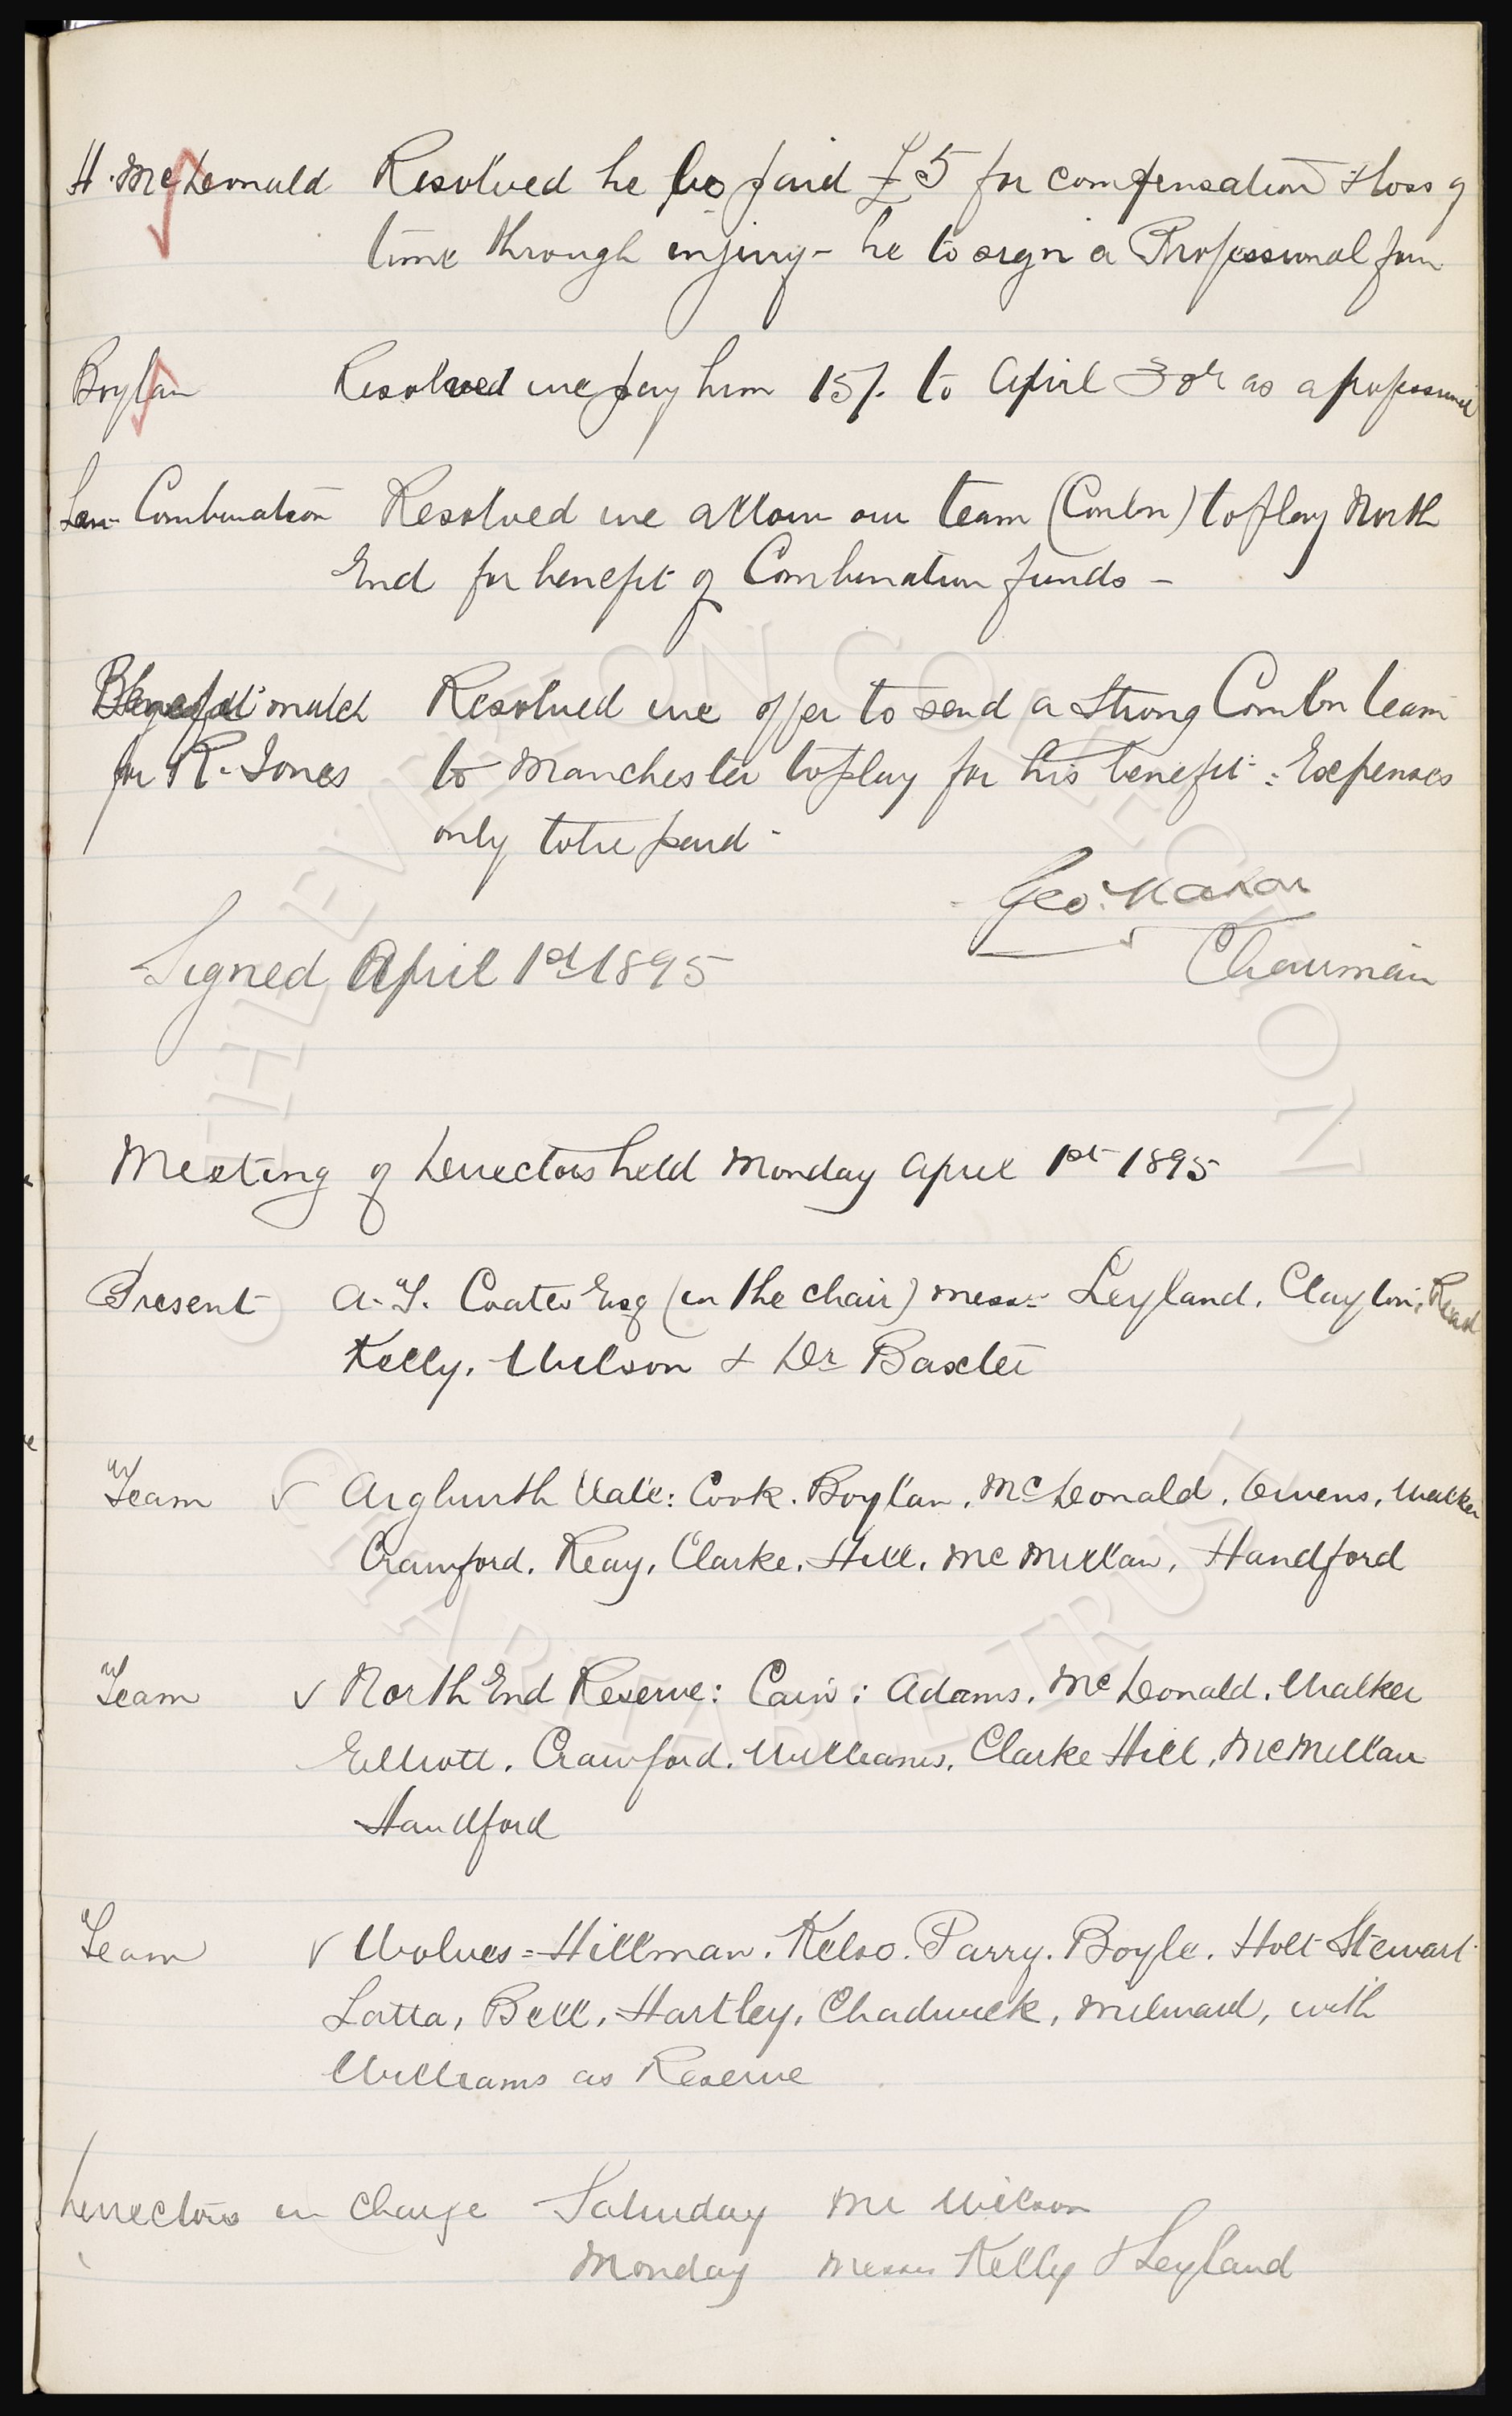 H. McDonald Resolved he be paid £5 for compensation & loss of
time through injury - he to sign a Professional form
Boylan Resolved we pay him 15/- to April 30th as a professional
Lan: Combination Resolved we allow our team (Combn) to play North
End for benefit of Combination funds -
Benefit match Resolved we offer to send a strong Combn team
for R. Jones to Manchester to play for his benefit: Expenses
only to be paid -
Geo. Mahon
Signed April 1st 1895 Chairman
Meeting of Directors held Monday April 1st 1895
Present A. T. Coates Esq (in the chair) Messrs Leyland, Clayton, Read
Kelly, Wilson & Dr Baxter
Team ✓ Aigburth Vale: Cook. Boylan, McDonald, Owens, Walker
Crawford, Reay, Clarke, Hill, McMillan, Handford
Team ✓ North End Reserve: Cain: Adams, McDonald, Walker
Elliott, Crawford, Williams, Clarke Hill, McMillan
Handford
Team ✓ Wolves = Hillman. Kelso. Parry. Boyle. Holt Stewart
Latta, Bell, Hartley, Chadwick, Milward, with
Williams as Reserve
Directors in charge Saturday Mr Wilson
Monday Messrs Kelly & Leyland
THE EVERTON COLLECTION
CHARITABLE TRUST